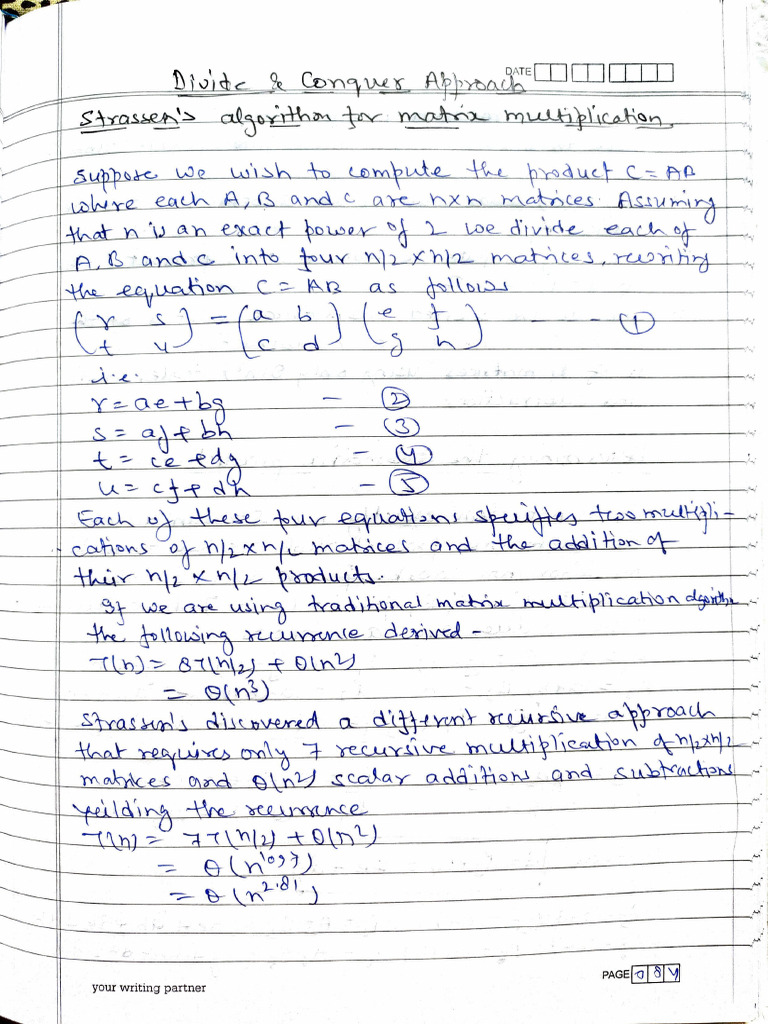 DATE
Divide & Conquer Approach
Strassen's algorithm for matrix multiplication.
Suppose we wish to compute the product C = AB
where each A, B and C are n×n matrices. Assuming
that n is an exact power of 2 we divide each of
A, B and C into four n/2 × n/2 matrices, rewriting
the equation C = AB as follows
(r s) = (a b) (e f) - - - ①
(t u) (c d) (g h)
i.e.
r = ae + bg - ②
s = af + bh - ③
t = ce + dg - ④
u = cf + dh - ⑤
Each of these four equations specifies two multipli-
cations of n/2 × n/2 matrices and the addition of
their n/2 × n/2 products.
If we are using traditional matrix multiplication algorithm
the following recurrence derived -
T(n) = 8T(n/2) + Θ(n²)
= Θ(n³)
Strassen's discovered a different recursive approach
that requires only 7 recursive multiplication of n/2×n/2
matrices and Θ(n²) scalar additions and subtractions
yeilding the recurrence
T(n) = 7T(n/2) + Θ(n²)
= Θ(n^log 7)
= Θ(n^2.81.)
PAGE 084
your writing partner